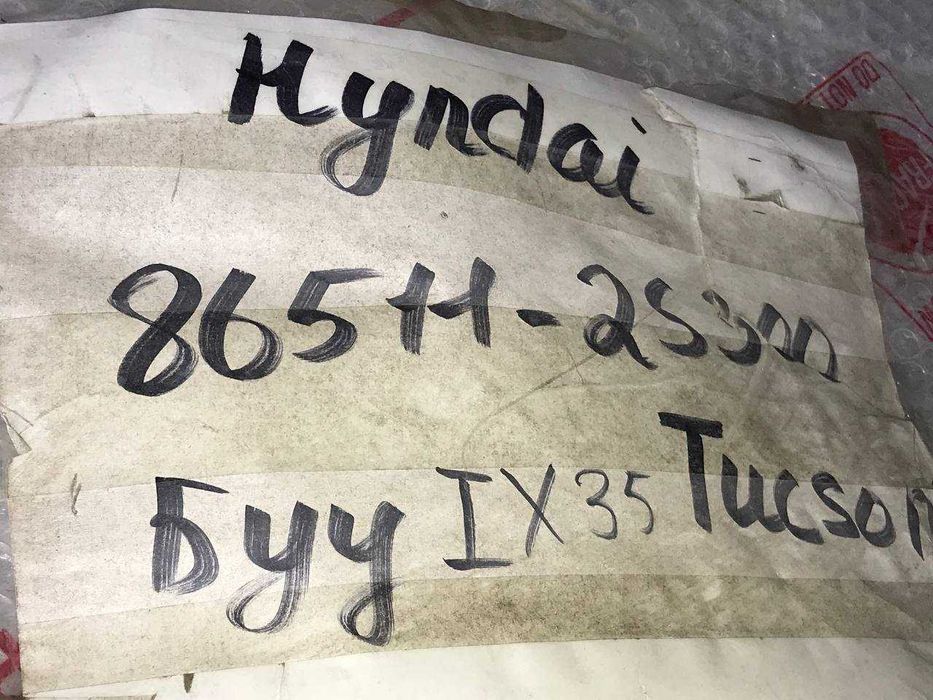 Hyndai
86511-2S300
Буу IX35 Tucson
DO NOT